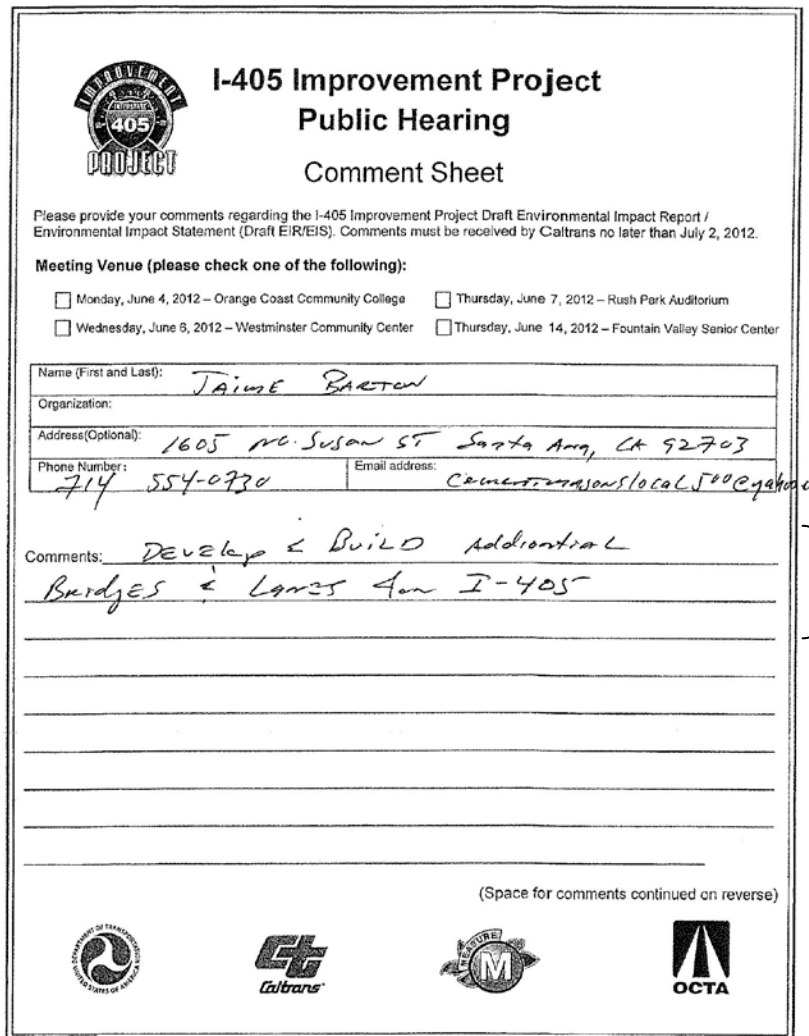 IMPROVEMENT
INTERSTATE
405
PROJECT
I-405 Improvement Project
Public Hearing
Comment Sheet
Please provide your comments regarding the I-405 Improvement Project Draft Environmental Impact Report /
Environmental Impact Statement (Draft EIR/EIS). Comments must be received by Caltrans no later than July 2, 2012.
Meeting Venue (please check one of the following):
Monday, June 4, 2012 – Orange Coast Community College
Thursday, June 7, 2012 – Rush Park Auditorium
Wednesday, June 6, 2012 – Westminster Community Center
Thursday, June 14, 2012 – Fountain Valley Senior Center
Name (First and Last): JAIME BARTON
Organization:
Address(Optional): 1605 NO. Susan ST Santa Ana, CA 92703
Phone Number: 714 554-0730
Email address: Cementmasonslocal500@yahoo
Comments: DEVElop & BuiLD Addiontial
BridgES & Lanes for I-405
(Space for comments continued on reverse)
DEPARTMENT OF TRANSPORTATION
UNITED STATES OF AMERICA
Caltrans
MEASURE
M
OCTA